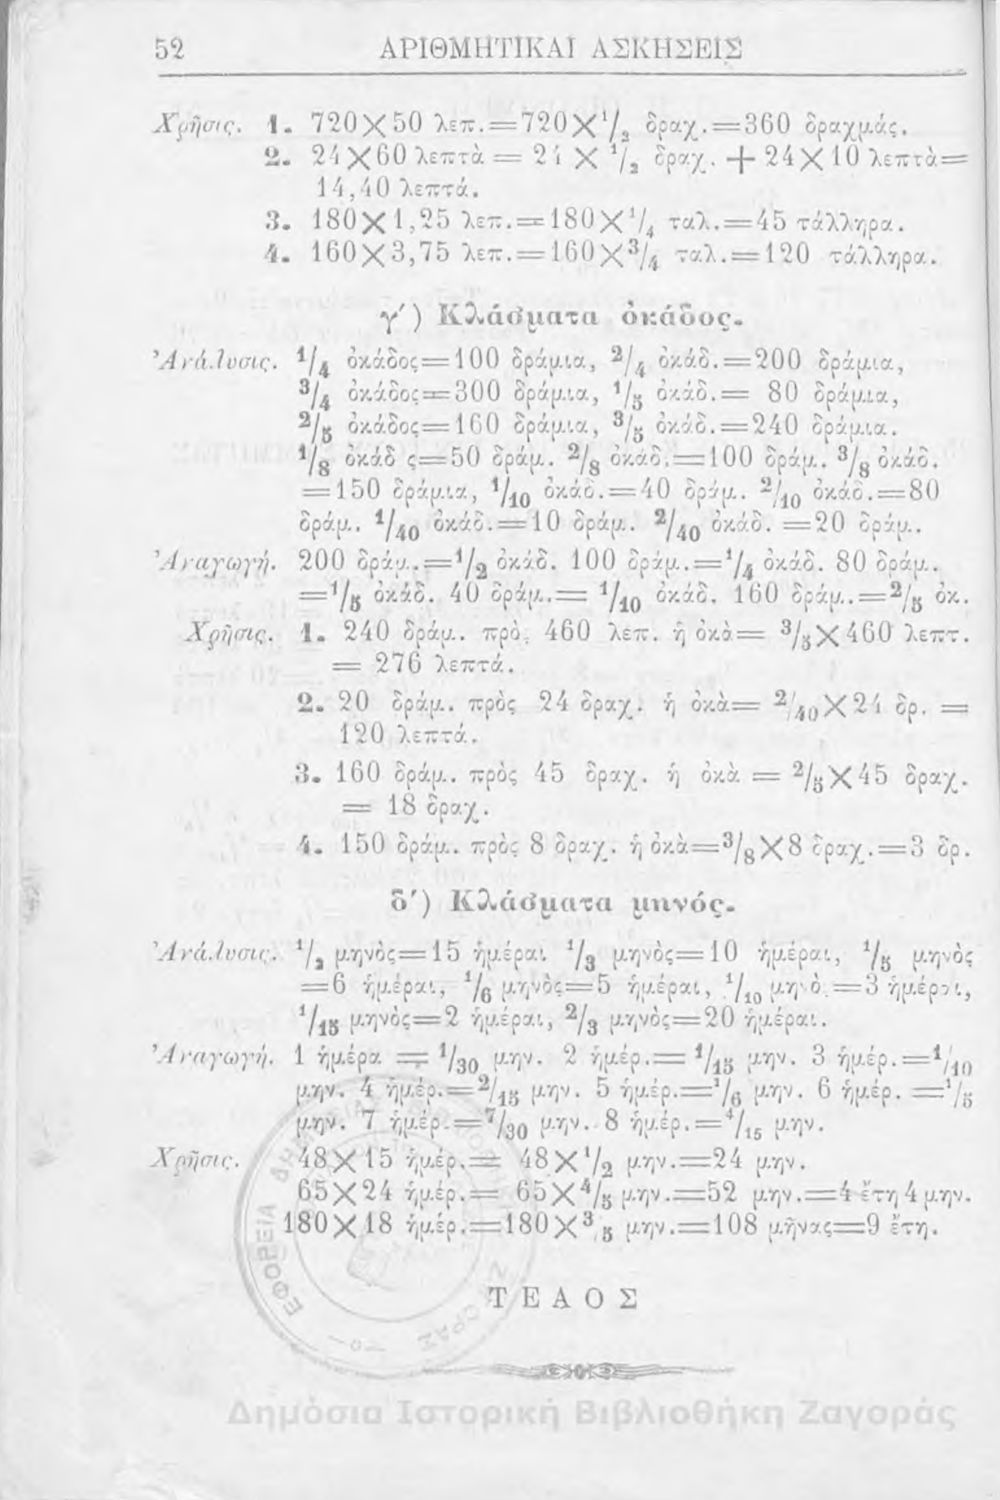 52 ΑΡΙΘΜΗΤΙΚΑΙ ΑΣΚΗΣΕΙΣ
Χρῆσις. 1. 720×50 λεπ.=720×1/2 δραχ.=360 δραχμάς.
2. 24×60 λεπτὰ = 24 × 1/2 δραχ. + 24×10 λεπτὰ=
14,40 λεπτά.
3. 180×1,25 λεπ.=180×1/4 ταλ.=45 τάλληρα.
4. 160×3,75 λεπ.=160×3/4 ταλ.=120 τάλληρα.
γ') Κλάσματα ὀκάδος.
Ἀνάλυσις. 1/4 ὀκάδος=100 δράμια, 2/4 ὀκάδ.=200 δράμια,
3/4 ὀκάδος=300 δράμια, 1/5 ὀκάδ.= 80 δράμια,
2/5 ὀκάδος=160 δράμια, 3/5 ὀκάδ.=240 δράμια.
1/8 ὀκάδ ς=50 δράμ. 2/8 ὀκάδ.=100 δράμ. 3/8 ὀκάδ.
=150 δράμια, 1/10 ὀκάδ.=40 δράμ. 2/10 ὀκάδ.=80
δράμ. 1/40 ὀκάδ.=10 δράμ. 2/40 ὀκάδ. =20 δράμ.
Ἀναγωγή. 200 δράμ.=1/2 ὀκάδ. 100 δράμ.=1/4 ὀκάδ. 80 δράμ.
=1/5 ὀκάδ. 40 δράμ.= 1/10 ὀκάδ. 160 δράμ.=2/5 ὀκ.
Χρῆσις. 1. 240 δράμ. πρὸς 460 λεπ. ἡ ὀκὰ= 3/5×460 λεπτ.
= 276 λεπτά.
2. 20 δράμ. πρὸς 24 δραχ. ἡ ὀκὰ= 2/40×24 δρ. =
120 λεπτά.
3. 160 δράμ. πρὸς 45 δραχ. ἡ ὀκὰ = 2/5×45 δραχ.
= 18 δραχ.
4. 150 δράμ. πρὸς 8 δραχ. ἡ ὀκὰ=3/8×8 δραχ.=3 δρ.
δ') Κλάσματα μηνός.
Ἀνάλυσις. 1/2 μηνὸς=15 ἡμέραι 1/3 μηνὸς=10 ἡμέραι, 1/5 μηνὸς
=6 ἡμέραι, 1/6 μηνὸς=5 ἡμέραι, 1/10 μηνὸ.=3 ἡμέραι,
1/15 μηνὸς=2 ἡμέραι, 2/3 μηνὸς=20 ἡμέραι.
Ἀναγωγή. 1 ἡμέρα = 1/30 μην. 2 ἡμέρ.= 1/15 μην. 3 ἡμέρ.=1/10
μην. 4 ἡμέρ.=2/15 μην. 5 ἡμέρ.=1/6 μην. 6 ἡμέρ. =1/5
μην. 7 ἡμέρ.=7/30 μην. 8 ἡμέρ.=4/15 μην.
Χρῆσις. 48×15 ἡμέρ.= 48×1/2 μην.=24 μην.
65×24 ἡμέρ.= 65×4/5 μην.=52 μην.=4 ἔτη 4 μην.
180×18 ἡμέρ.=180×3/5 μην.=108 μῆνας=9 ἔτη.
ΤΕΛΟΣ
ΕΦΟΡΕΙΑ
Δημόσια Ιστορική Βιβλιοθήκη Ζαγοράς